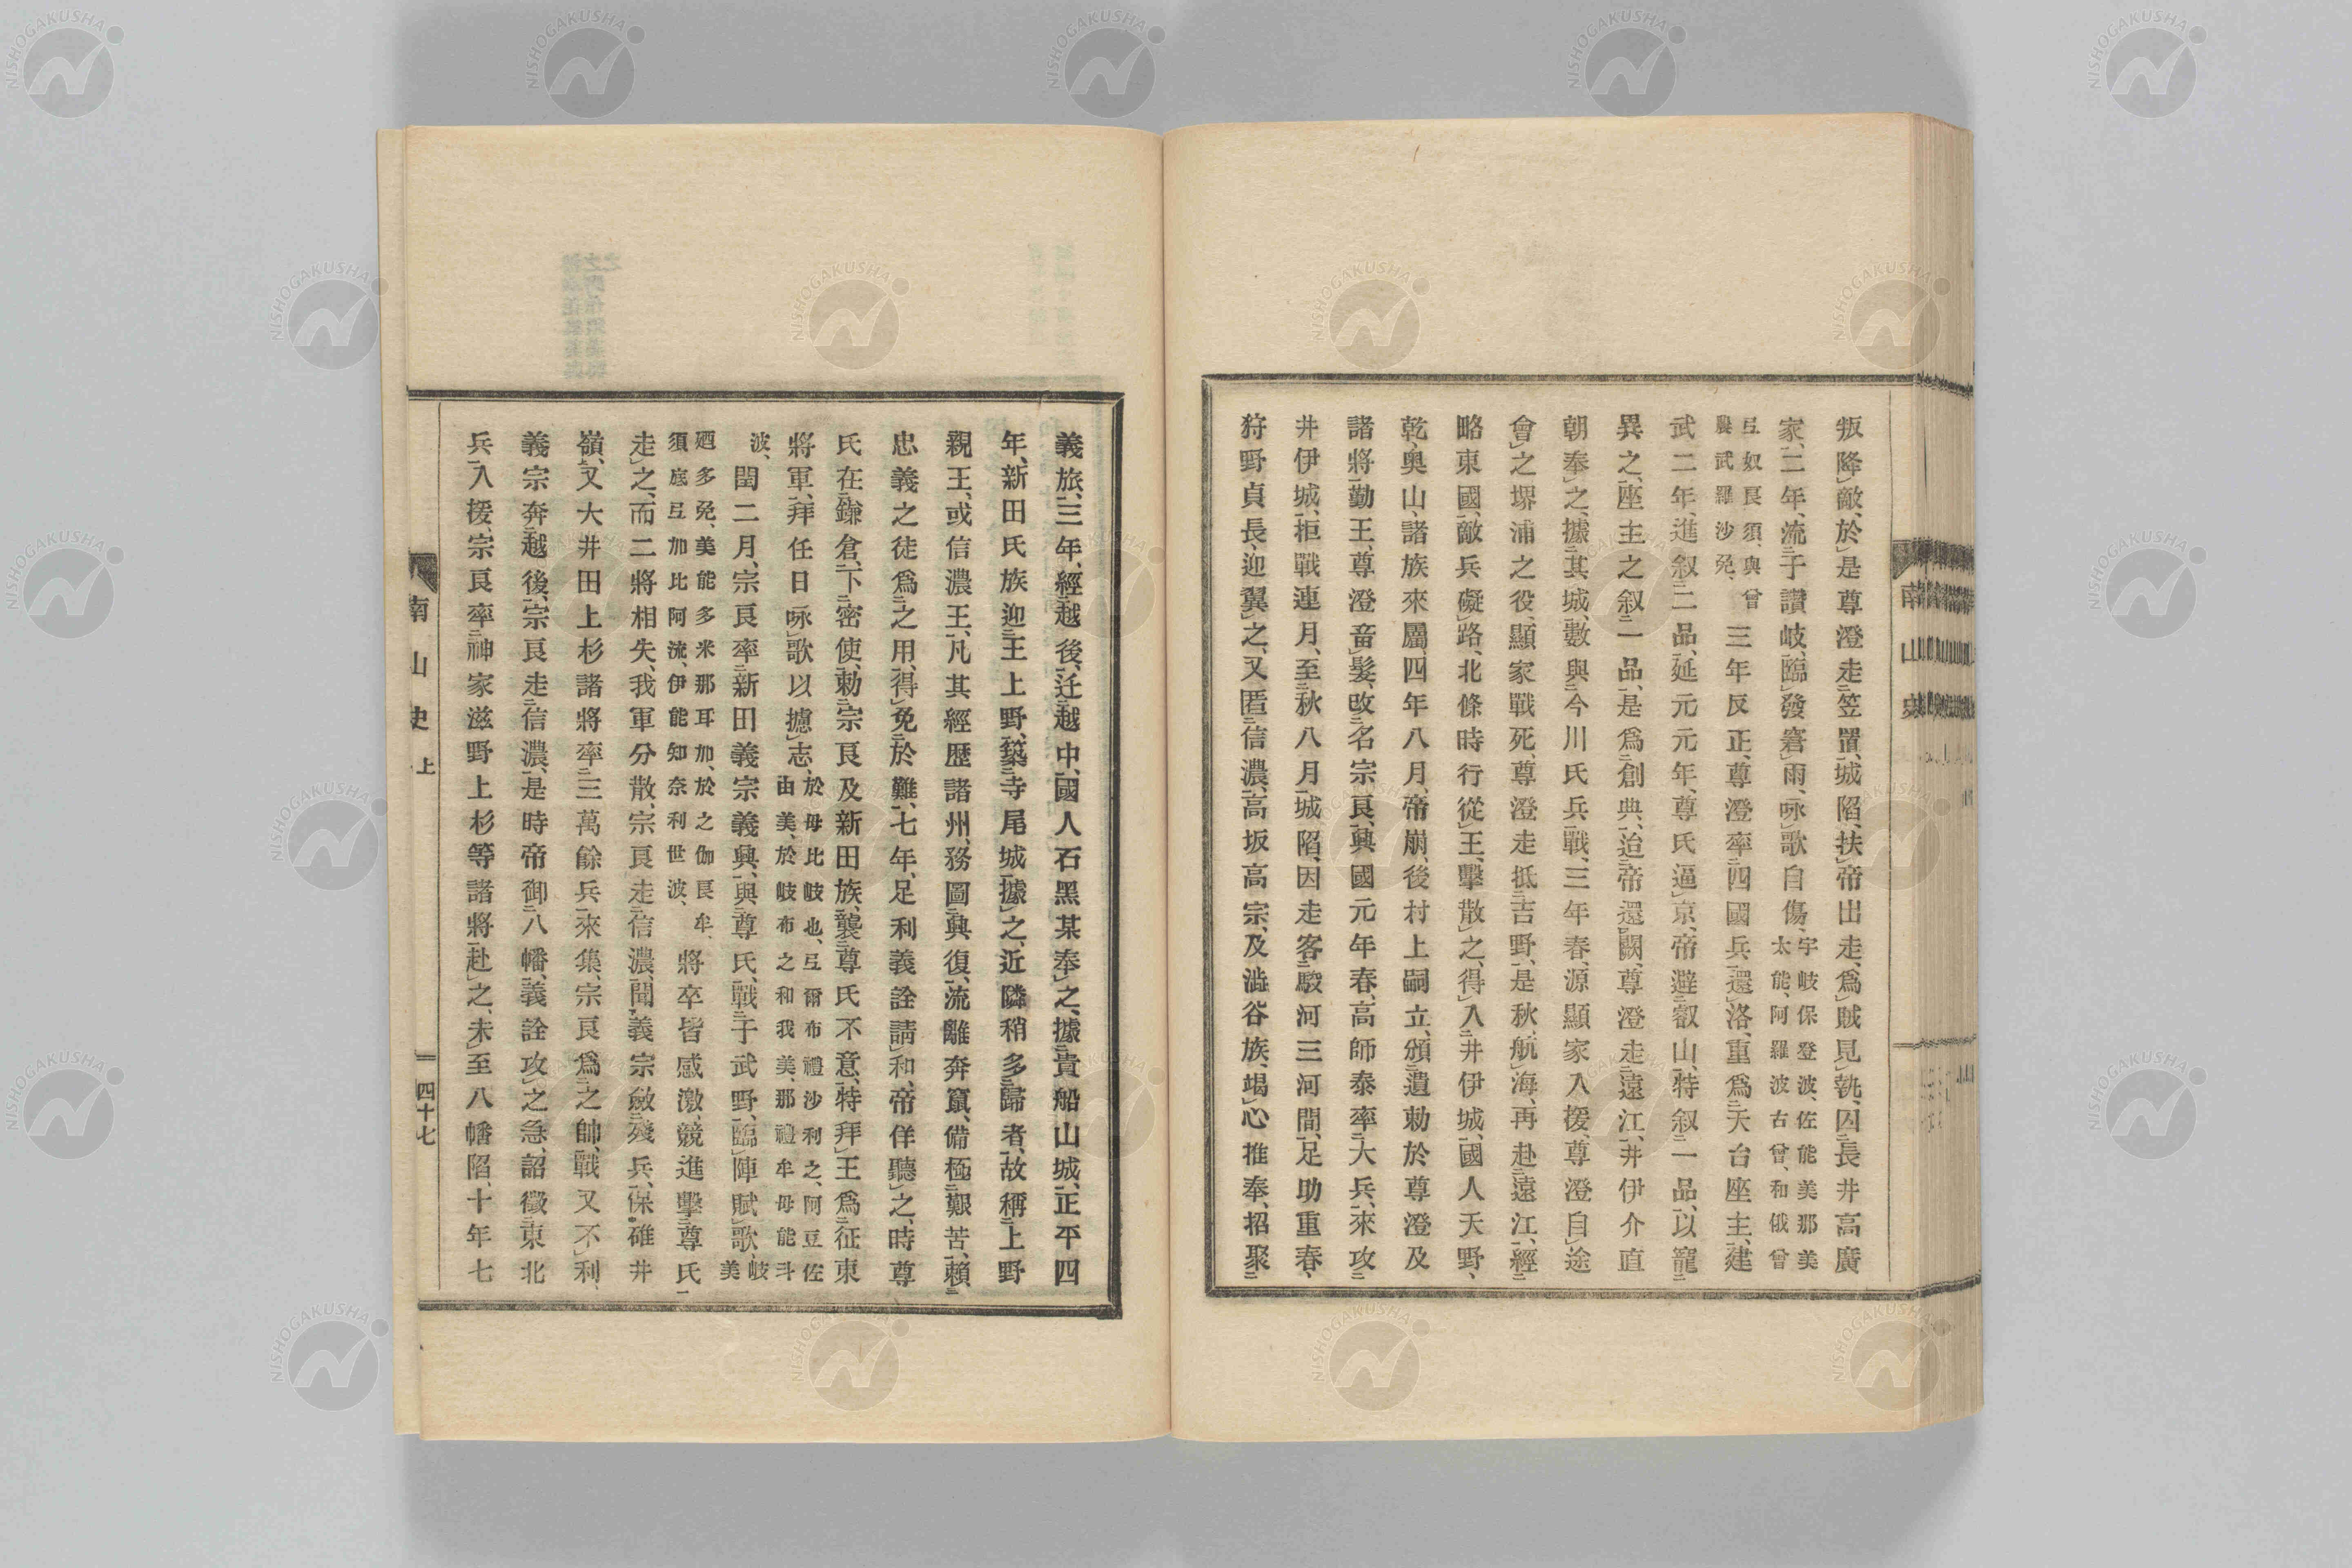 叛降敵、於是尊澄走笠置、城陷、扶帝出走、爲賊見執、囚長井高廣
家、二年、流于讃岐、臨發雨、咏歌自傷、宇岐保登波、佐能美那美
太能、阿羅波古曾、和俄曾
亙奴良須、與曾
農武羅沙免、三年反正、尊澄率四國兵還洛、重爲天台座主、建
武二年、進叙二品、延元元年、尊氏逼京、帝避叡山、特叙一品、以寵
異之、座主之叙一品、是爲創典、迨帝還闕、尊澄走遠江、井伊介直
朝奉之、據其城、數與今川氏兵戰、三年春、源顯家入援、尊澄自途
會之堺浦之役、顯家戰死、尊澄走抵吉野、是秋、航海、再赴遠江、經
略東國、敵兵礙路、北條時行從王、擊散之、得入井伊城、國人天野、
乾、奥山、諸族來屬、四年八月、帝崩、後村上嗣立、頒遺勅於尊澄及
諸將勤王、尊澄畜髮、改名宗良、興國元年春、高師泰率大兵、來攻
井伊城、拒戰連月、至秋八月城陷、因走客駿河三河間、足助重春、
狩野貞長、迎翼之、又匿信濃、高坂高宗、及澁谷族、竭心推奉、招聚
義旅、三年、經越後、迁越中、國人石黑某奉之、據貴船山城、正平四
年、新田氏族迎王上野、築寺尾城據之、近隣稍多歸者、故稱上野
親王、或信濃王、凡其經歴諸州、務圖興復、流離奔竄、備極艱苦、賴
忠義之徒爲之用、得免於難、七年、足利義詮請和、帝佯聽之、時尊
氏在鎌倉、下密使、勅宗良及新田族、襲尊氏不意、特拜王爲征東
將軍、拜任日咏歌以攄志、於毋比岐也、亙爾布禮沙利之、阿豆佐
由美、於岐布之和我美、那禮牟毋能斗
波、閏二月、宗良率新田義宗義興、與尊氏、戰于武野、臨陣賦歌、岐
美
廼多免、美能多米那耳加、於之伽良牟、
須底亙加比阿流、伊能知奈利世波、將卒皆感激、競進擊尊氏
走之、而二將相失、我軍分散、宗良走信濃、聞義宗斂殘兵、保碓井
嶺、又大井田上杉諸將率三萬餘兵來集、宗良爲之帥、戰又不利、
義宗奔越後、宗良走信濃、是時帝御八幡、義詮攻之急、詔徵東北
兵入援、宗良率神家滋野上杉等諸將赴之、未至八幡陷、十年七
南山史 上
四十七
南山史